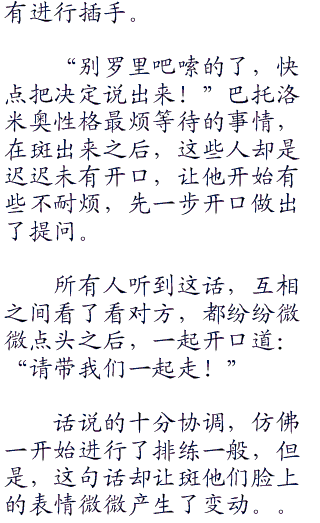 有进行插手。
“别罗里吧嗦的了，快
点把决定说出来！”巴托洛
米奥性格最烦等待的事情，
在斑出来之后，这些人却是
迟迟未有开口，让他开始有
些不耐烦，先一步开口做出
了提问。
所有人听到这话，互相
之间看了看对方，都纷纷微
微点头之后，一起开口道：
“请带我们一起走！”
话说的十分协调，仿佛
一开始进行了排练一般，但
是，这句话却让斑他们脸上
的表情微微产生了变动。。